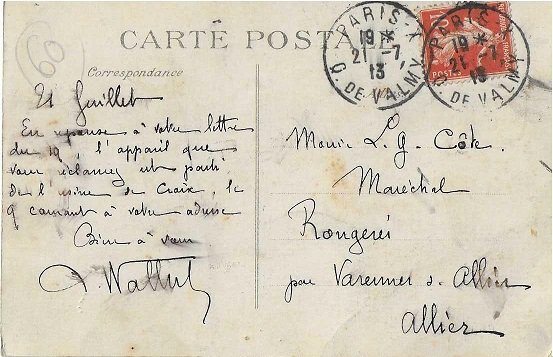 CARTE POSTALE
Correspondance
60
PARIS X
19 *
21 - 7
13
Q. DE VALMY
PARIS X
19 *
21 - 7
13
Q. DE VALMY
POSTES
21 Juillet
En réponse à votre lettre
du 19, l'appareil que
vous réclamez est parti
de l'usine de Croix, le
9 courant à votre adresse
Bien à vous
L. G. Côte
Maréchal
Rongères
par Varennes s. Allier
Allier